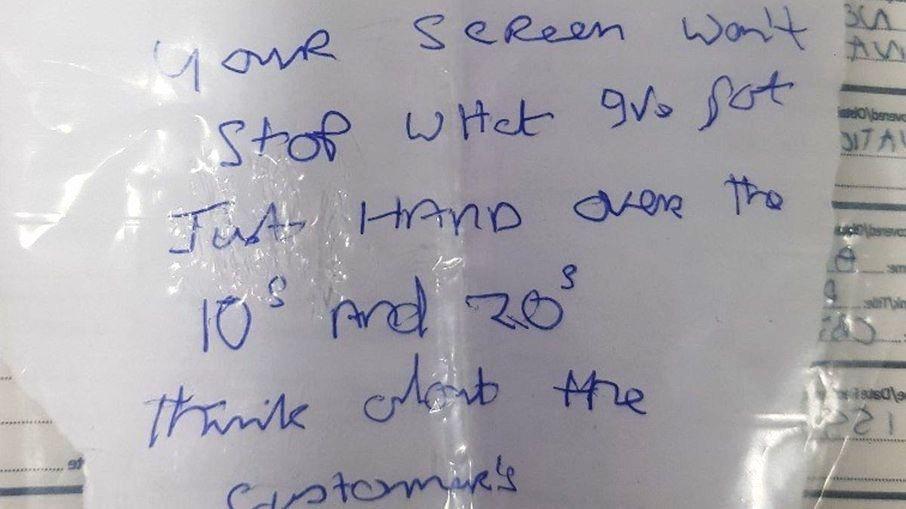 Your Screen Won't
Stop What Ive Got
Just HAND over the
10s And 20s
Think about the
Customer's